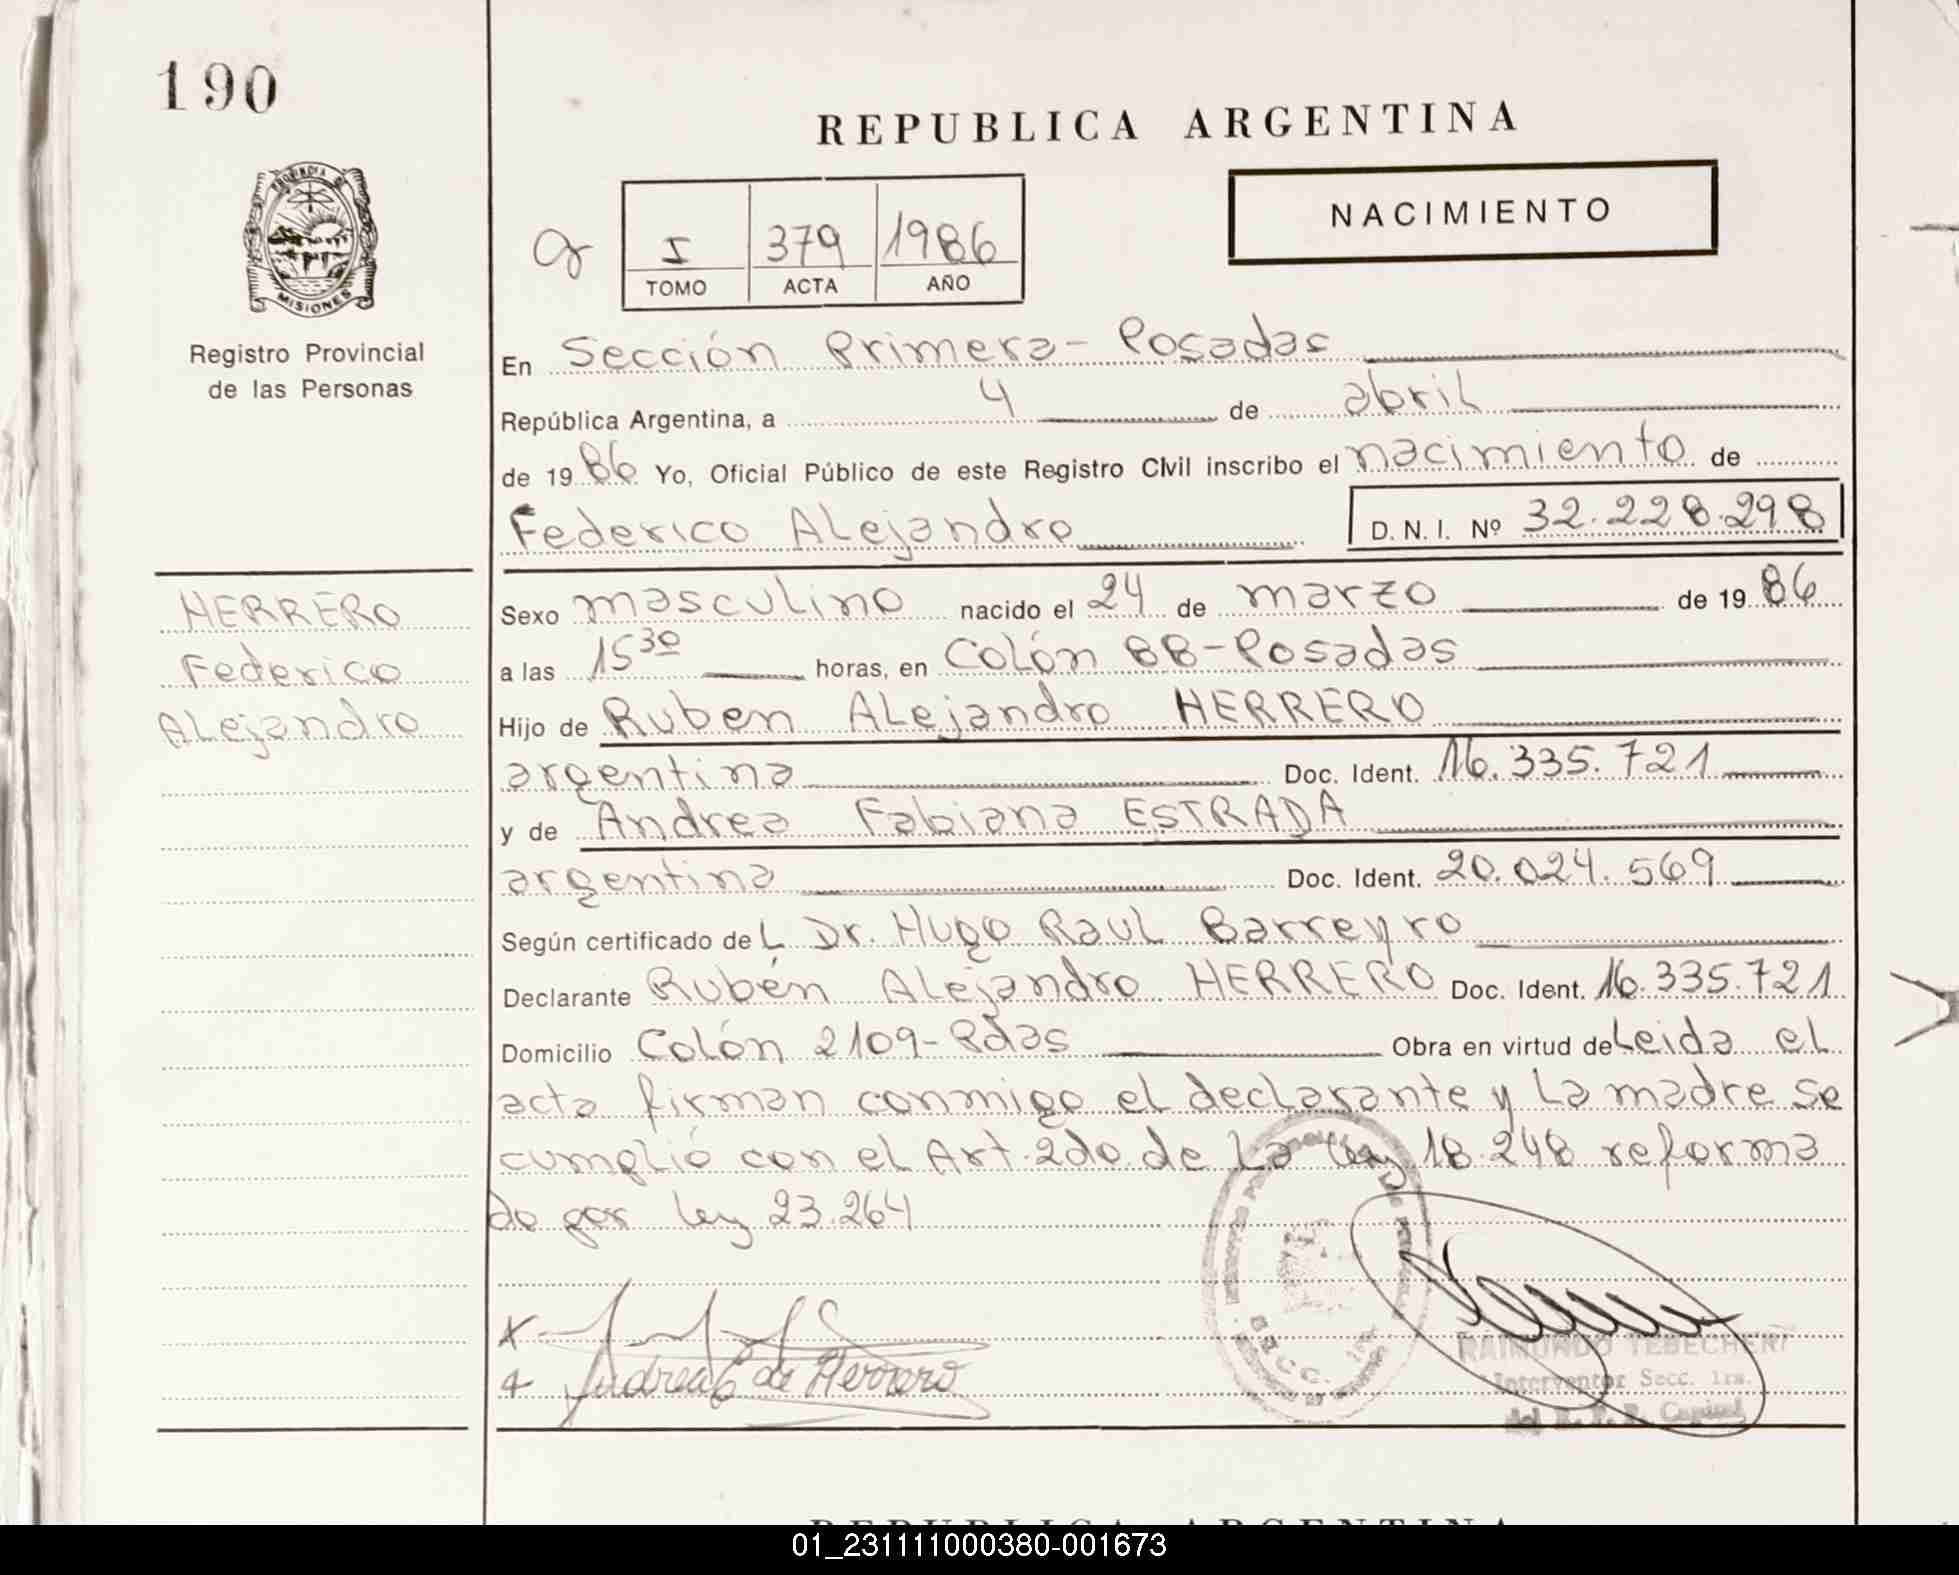 190
REPUBLICA ARGENTINA
NACIMIENTO
PROVINCIA DE
MISIONES
Registro Provincial
de las Personas
I 379 1986
TOMO ACTA AÑO
En Sección Primera - Posadas
República Argentina, a 4 de abril
de 1986 Yo, Oficial Público de este Registro Civil inscribo el nacimiento de
Federico Alejandro D.N.I. Nº 32.228.298
HERRERO
Federico
Alejandro
Sexo masculino nacido el 24 de marzo de 1986
a las 15 30 horas, en Colón 88-Posadas
Hijo de Ruben Alejandro HERRERO
argentina Doc. Ident. 16.335.721
y de Andrea Fabiana ESTRADA
argentina Doc. Ident. 20.024.569
Según certificado del Dr. Hugo Raul Barreyro
Declarante Rubén Alejandro HERRERO Doc. Ident. 16.335.721
Domicilio Colón 2109-Pdas Obra en virtud de Leida el
acta firman conmigo el declarante y la madre se
cumplió con el Art. 2do. de la ley 18.248 reforma
do por ley 23.264
Andrea de Herrero
RAIMUNDO TEBECHERI
Interventor Secc. 1ra.
del R. P. P. Capital
REPUBLICA ARGENTINA
01_231111000380-001673